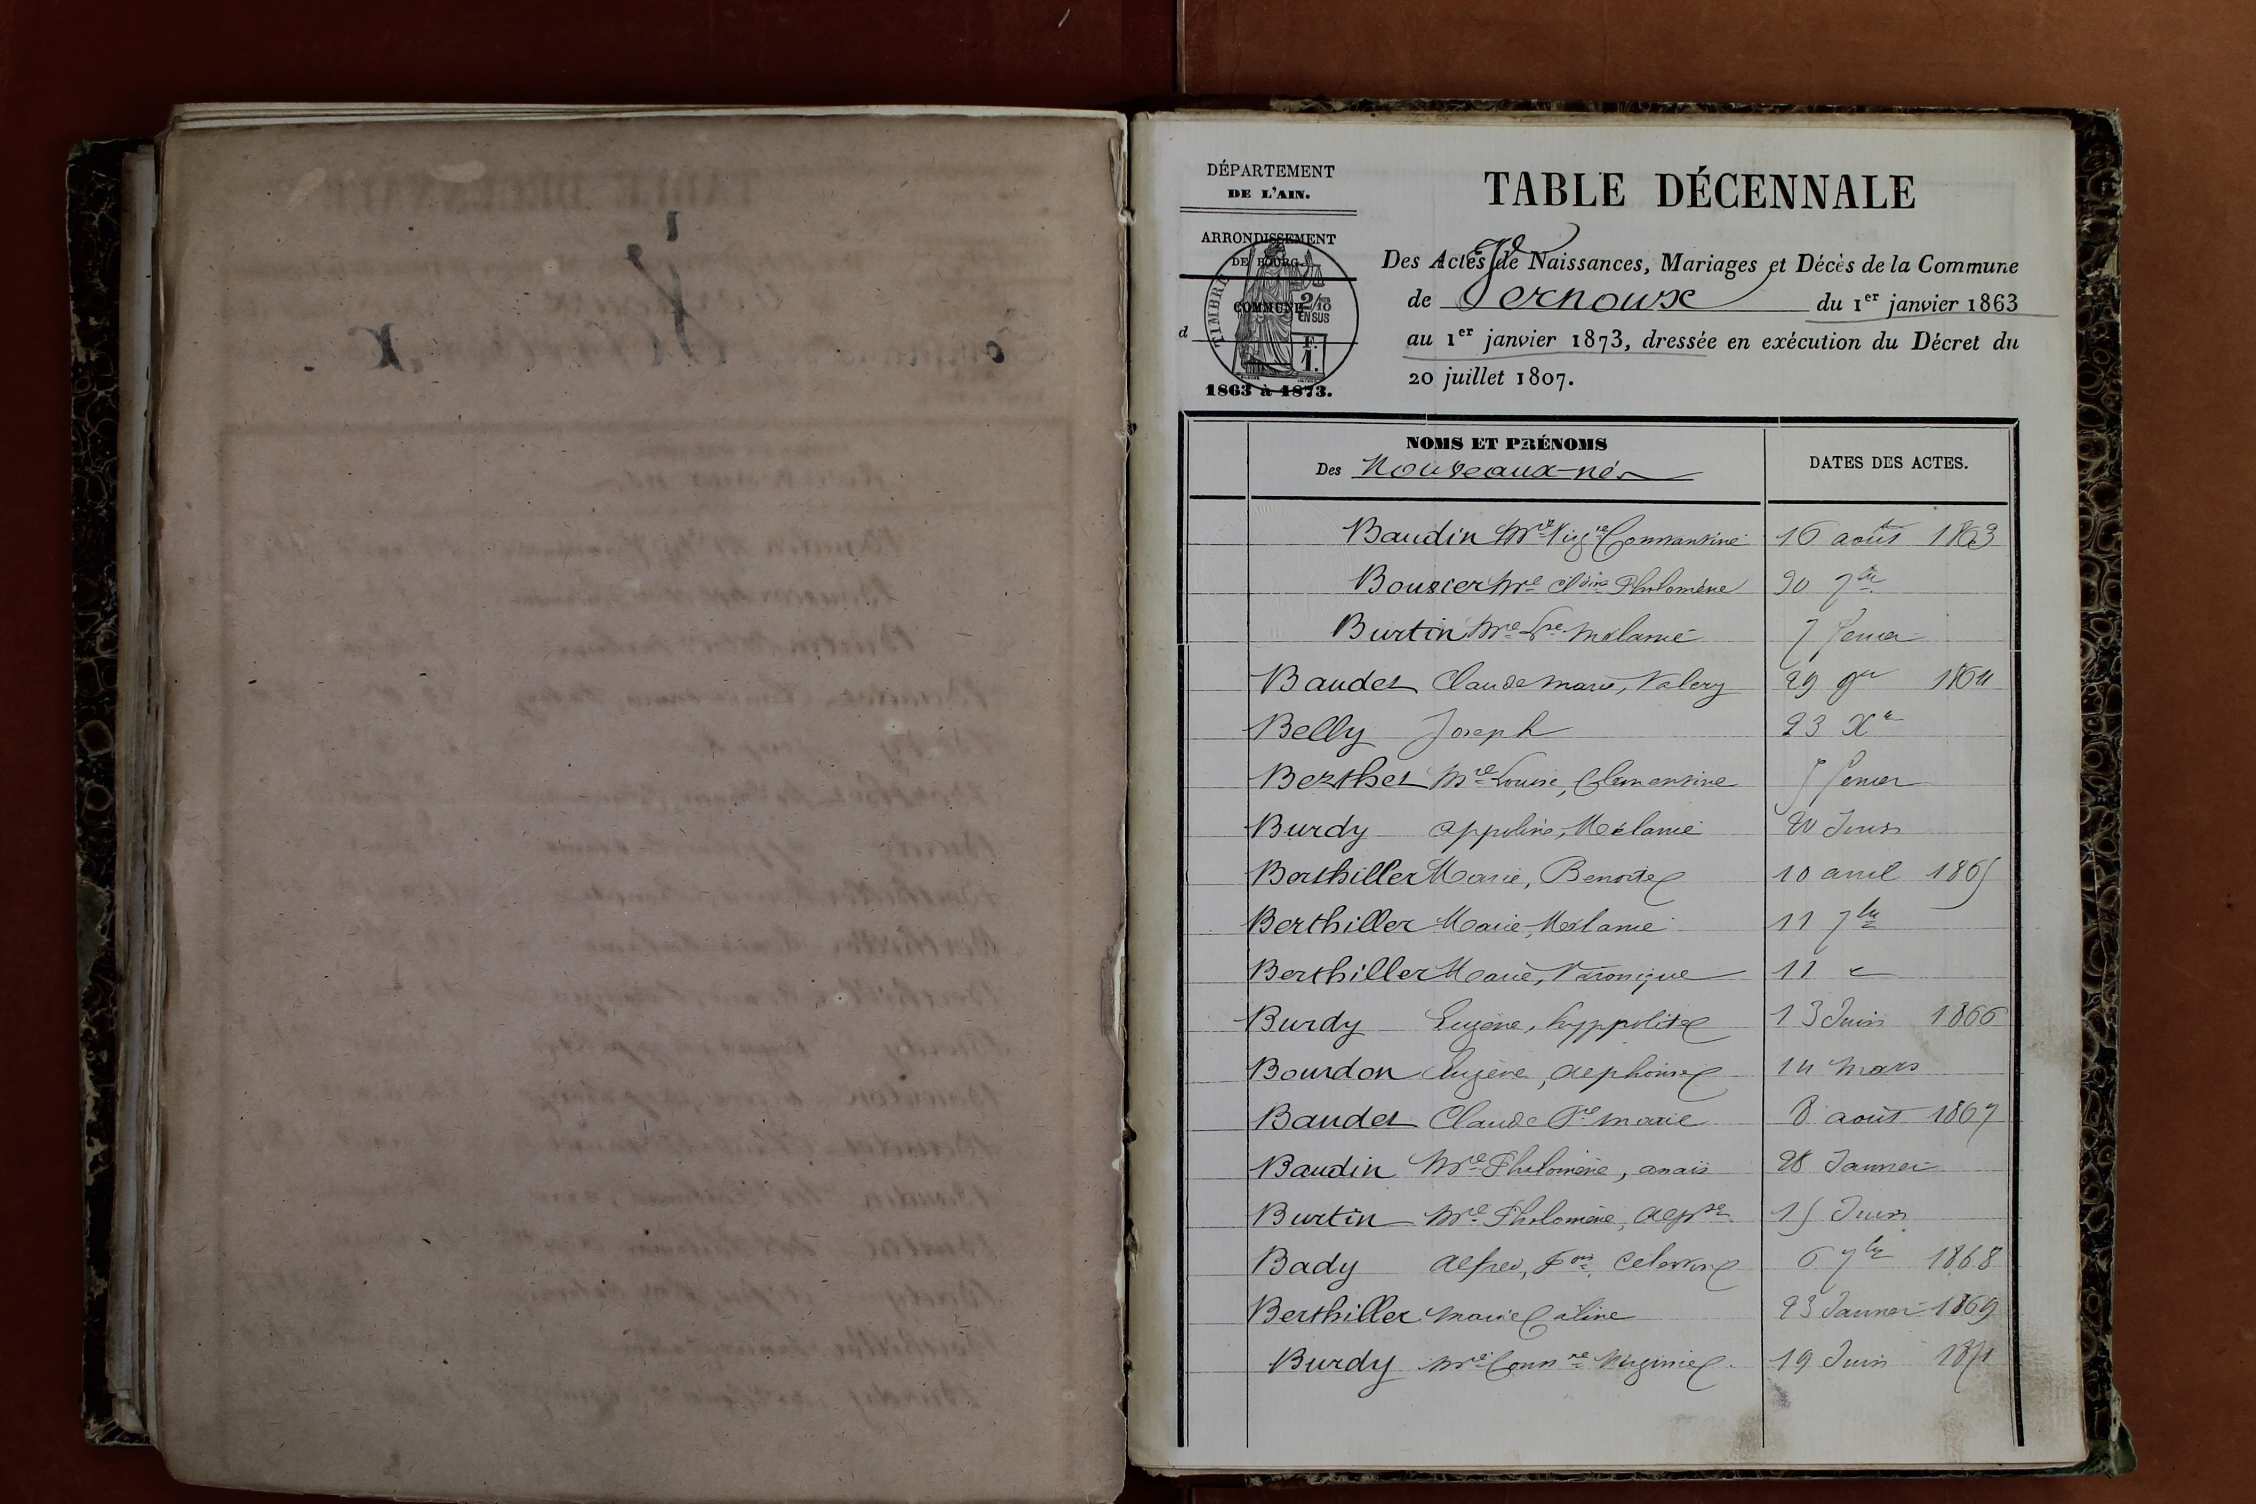 DÉPARTEMENT
DE L'AIN.
ARRONDISSEMENT
DE BOURG
COMMUNE
d
1863 à 1873.
TIMBRE
2/10
EN SUS
TABLE DÉCENNALE
Des Actes de Naissances, Mariages et Décès de la Commune
de Vernoux du 1er janvier 1863
au 1er janvier 1873, dressée en exécution du Décret du
20 juillet 1807.
NOMS ET PRÉNOMS
Des Nouveaux-nés
DATES DES ACTES.
Baudin Mie Constantine 16 août 1863
Mie Philomène 30 7bre
Burtin Mie Mélanie 7
Baudet Claude Marie, Valery 29 9bre 1864
Belly Joseph 23 Xe
Berthet Mie Louise, Clementine 5
Burdy appoline, Mélanie 20 Juin
Berthiller Marie, Benoite 10 avril 1865
Berthiller Marie, Mélanie 11 7bre
Berthiller Marie, Véronique 11
Burdy Eugène, hyppolite 13 Juin 1866
Bourdon Eugène, alphonse 14 Mars
Baudet Claude Marie 8 août 1867
Baudin Mie Philomène, anaïs 28 Janvier
Burtin Mie Philomène, 15 Juin
Bady alfred, Celestin 6 7bre 1868
Berthiller Marie Céline 23 Janvier 1869
Burdy Mie Virginie 19 Juin 1871